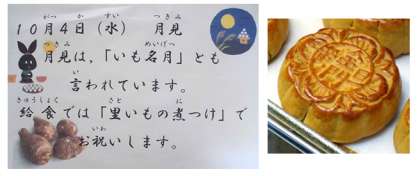 10月4日（水） 月見
月見は、「いも名月」とも
言われています。
給食では「里いもの煮つけ」で
お祝いします。